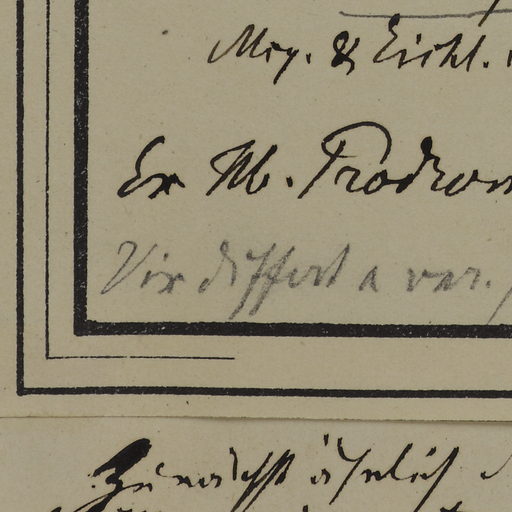 Mey. & Eichl.
Ex Hb. Prodrom
Vix differt a var.
Zunächst ähnlich